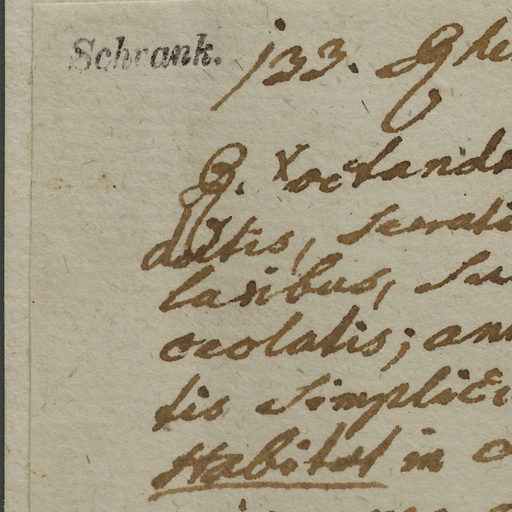 Schrank. 133. Sphe
S. octandr
datis, serrati
laribus, su
ceolatis; ann
tis simplici
Habitat in